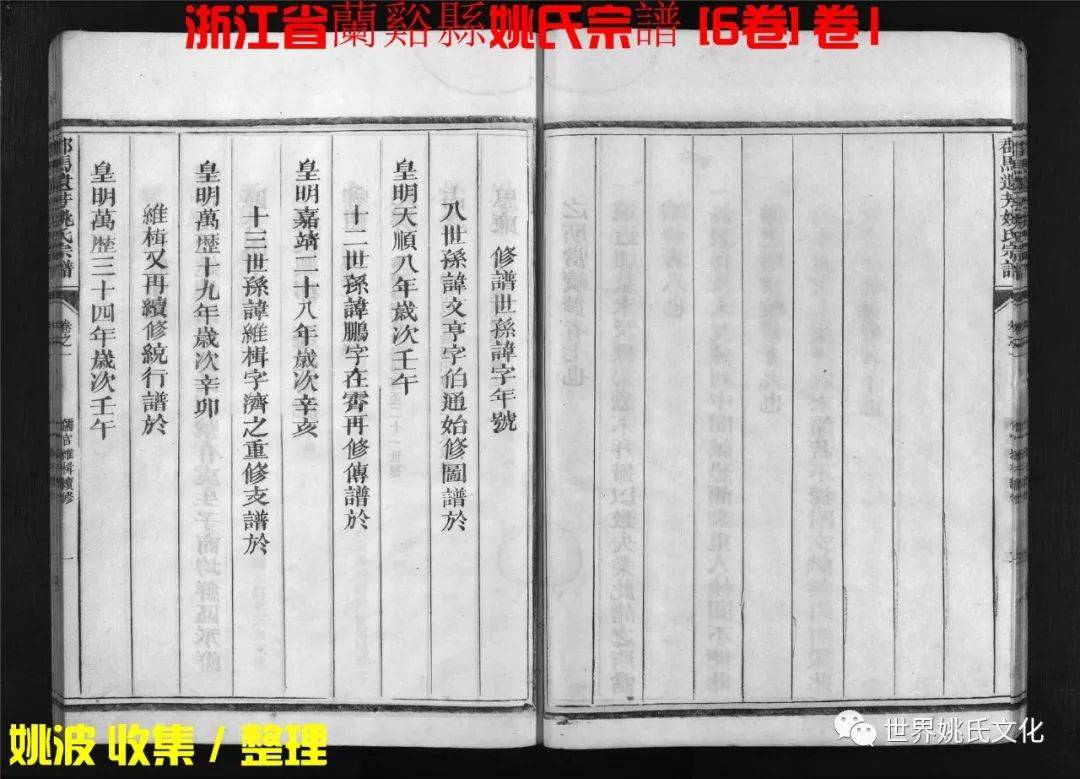 浙江省蘭谿縣姚氏宗譜 [6卷] 卷1
修譜世孫諱字年號
八世孫諱文亨字伯通始修圖譜於
皇明天順八年歲次壬午
十二世孫諱鵬字在霄再修傳譜於
皇明嘉靖二十八年歲次辛亥
十三世孫諱維楫字濟之重修支譜於
皇明萬歷十九年歲次辛卯
維楫又再續修統行譜於
皇明萬歷三十四年歲次壬午
姚氏宗譜
卷之一
維楫續修
一
姚波 收集 / 整理
世界姚氏文化